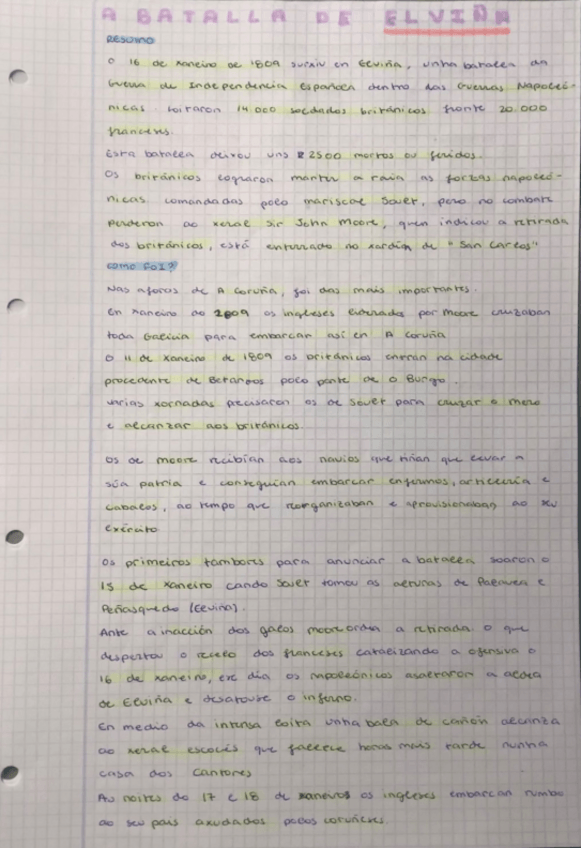 A BATALLA DE ELVIÑA
RESUMO
O 16 de xaneiro de 1809 surxiu en Elviña, unha batalla da
Guerra de Independencia Española dentro das Guerras Napoleó-
nicas. Loitaron 14.000 soldados británicos fronte 20.000
franceses.
Esta batalla deixou uns 2500 mortos ou feridos.
Os británicos lograron manter a raia as forzas napoleó-
nicas comandadas polo mariscal Soult, pero no combate
perderon ao xeral Sir John Moore, quen indicou a retirada
dos británicos, está enterrado no xardín de "San Carlos"
COMO FOI?
Nas aforas de A Coruña, foi das mais importantes.
En xaneiro do 2009 os ingleses liderados por Moore cruzaban
toda Galicia para embarcar así en A Coruña
O 11 de xaneiro de 1809 os británicos entran na cidade
procedente de Betanzos polo ponte de O Burgo.
Varias xornadas precisaron os de Soult para cruzar o Mero
e alcanzar aos británicos.
Os de Moore recibían aos navíos que tiñan que levar a
súa patria e conseguían embarcar enfermos, artillería e
cabalos, ao tempo que reorganizaban e aprovisionaban ao seu
exército
Os primeiros tambores para anunciar a batalla soaron o
15 de xaneiro cando Soult tomou as alturas de Palavea e
Peñasquedo (Elviña).
Ante a inacción dos galos Moore ordea a retirada. O que
despertou o recelo dos franceses catalizando a ofensiva o
16 de xaneiro, ese día os napoleónicos asaltaron a aldea
de Elviña e desatouse o inferno.
En medio da intensa loita unha bala de cañón alcanza
ao xeral escocés que falece horas mais tarde nunha
casa dos Cantones
As noites do 17 e 18 de xaneiros os ingleses embarcan rumbo
ao seu país axudados polos coruñeses.